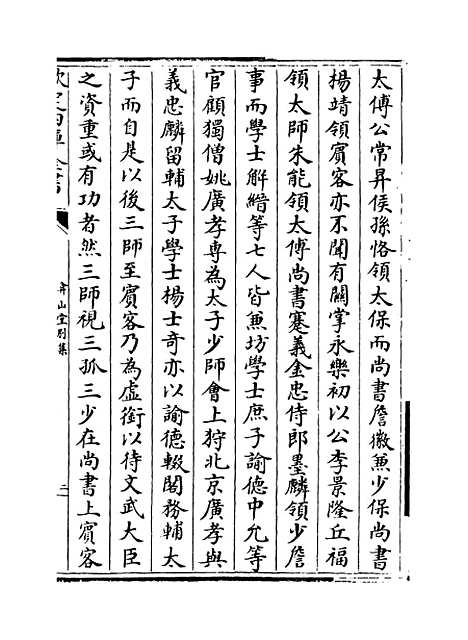 太傅公常昇侯孫恪領太保而尚書詹徽兼少保尚書
楊靖領賓客亦不聞有關掌永樂初以公李景隆丘福
領太師朱能領太傅尚書蹇義金忠侍郎墨麟領少詹
事而學士解縉等七人皆兼坊學士庶子諭德中允等
官顧獨僧姚廣孝専為太子少師會上狩北京廣孝與
義忠麟留輔太子學士楊士奇亦以諭德輟閣務輔太
子而自是以後三師至賓客乃為虛銜以待文武大臣
之資重或有功者然三師視三孤三少在尚書上賓客
欽定四庫全書
弇山堂别集
二